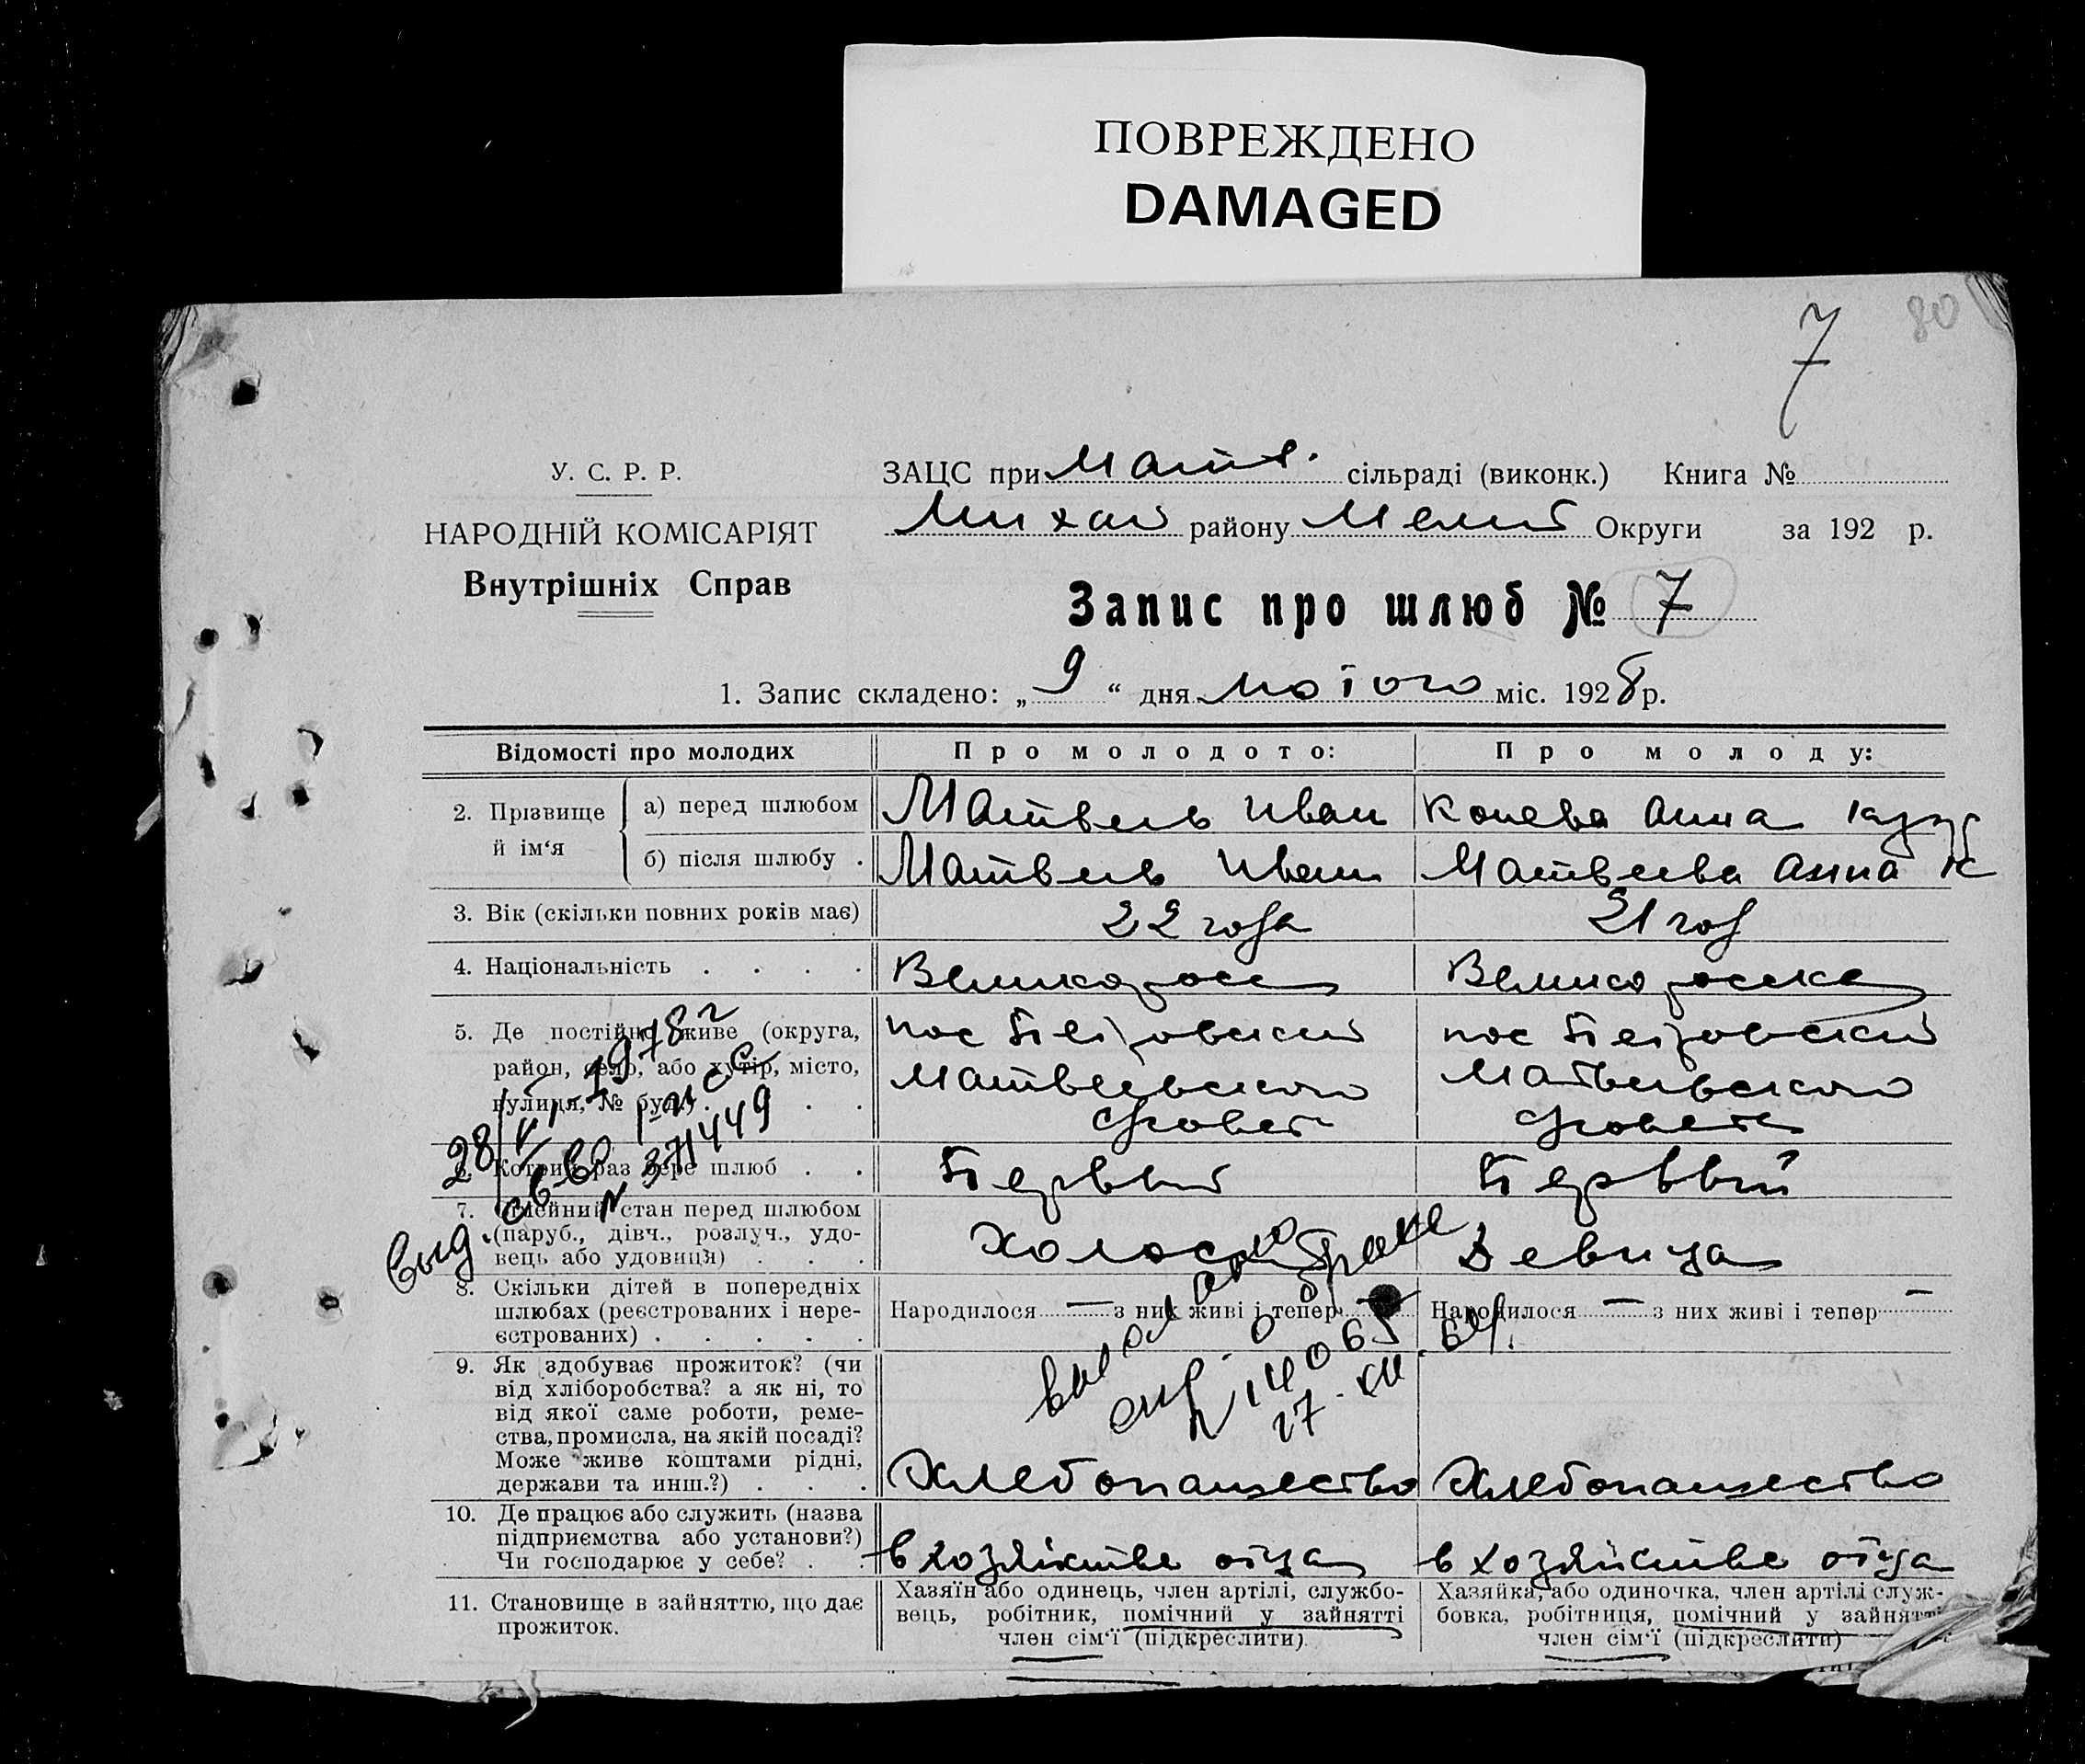 ПОВРЕЖДЕНО
DAMAGED
7 80
У. С. Р. Р.
НАРОДНІЙ КОМІСАРІЯТ
Внутрішніх Справ
ЗАЦС при Матв. сільраді (виконк.) Книга №
Михай району Мелит Округи за 192 р.
Запис про шлюб № 7
1. Запис складено: „ 9 “ дня лютого міс. 1928 р.
Відомості про молодих
Про молодого:
Про молоду:
2. Прізвище й ім‘я
а) перед шлюбом
Матвеев Иван
Конева Анна
б) після шлюбу .
Матвеев Иван
Матвеева Анна К
3. Вік (скільки повних років має)
22 года
21 год
4. Національність . . . .
Великоросс
Великоросска
5. Де постійно живе (округа,
район, село, або хутір, місто,
вулиця, № буд.) . . .
пос Петровский
Матвеевского
Совета
пос Петровский
Матвеевского
Совета
6. Котрий раз бере шлюб . .
Первый
Первый
7. Сімейний стан перед шлюбом
(паруб., дівч., розлуч., удо-
вець або удовиця) . . .
Холост
Девица
8. Скільки дітей в попередніх
шлюбах (реєстрованих і нере-
єстрованих) . . . . .
Народилося — з них живі і тепер —
Народилося — з них живі і тепер —
9. Як здобуває прожиток? (чи
від хліборобства? а як ні, то
від якої саме роботи, реме-
ства, промисла, на якій посаді?
Може живе коштами рідні,
держави та инш.?) . . .
Хлебопашество
Хлебопашество
10. Де працює або служить (назва
підприємства або установи?)
Чи господарює у себе? . .
в хозяйстве отца
в хозяйстве отца
11. Становище в зайняттю, що дає
прожиток.
Хазяїн або одинець, член артілі, службо-
вець, робітник, помічний у зайнятті
член сім‘ї (підкреслити).
Хазяйка, або одиночка, член артілі служ-
бовка, робітниця, помічний у зайнятті
член сім‘ї (підкреслити)
Выд. св-во
№ 371449
28/VI-1978 г
о браке
N 14065
27. XII. 61г.